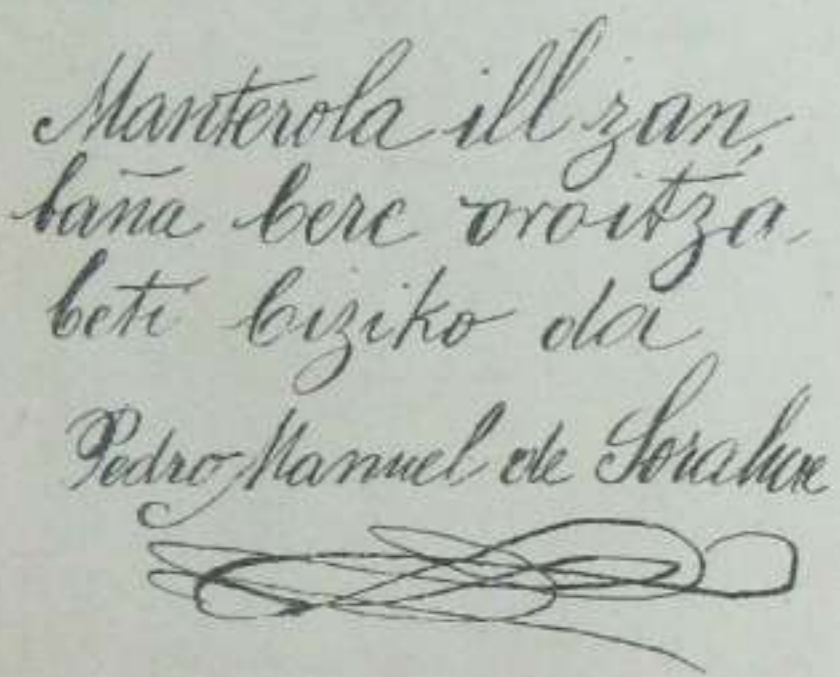 Manterola ill zan,
baña bere oroitza
beti biziko da
Pedro Manuel de Soraluce